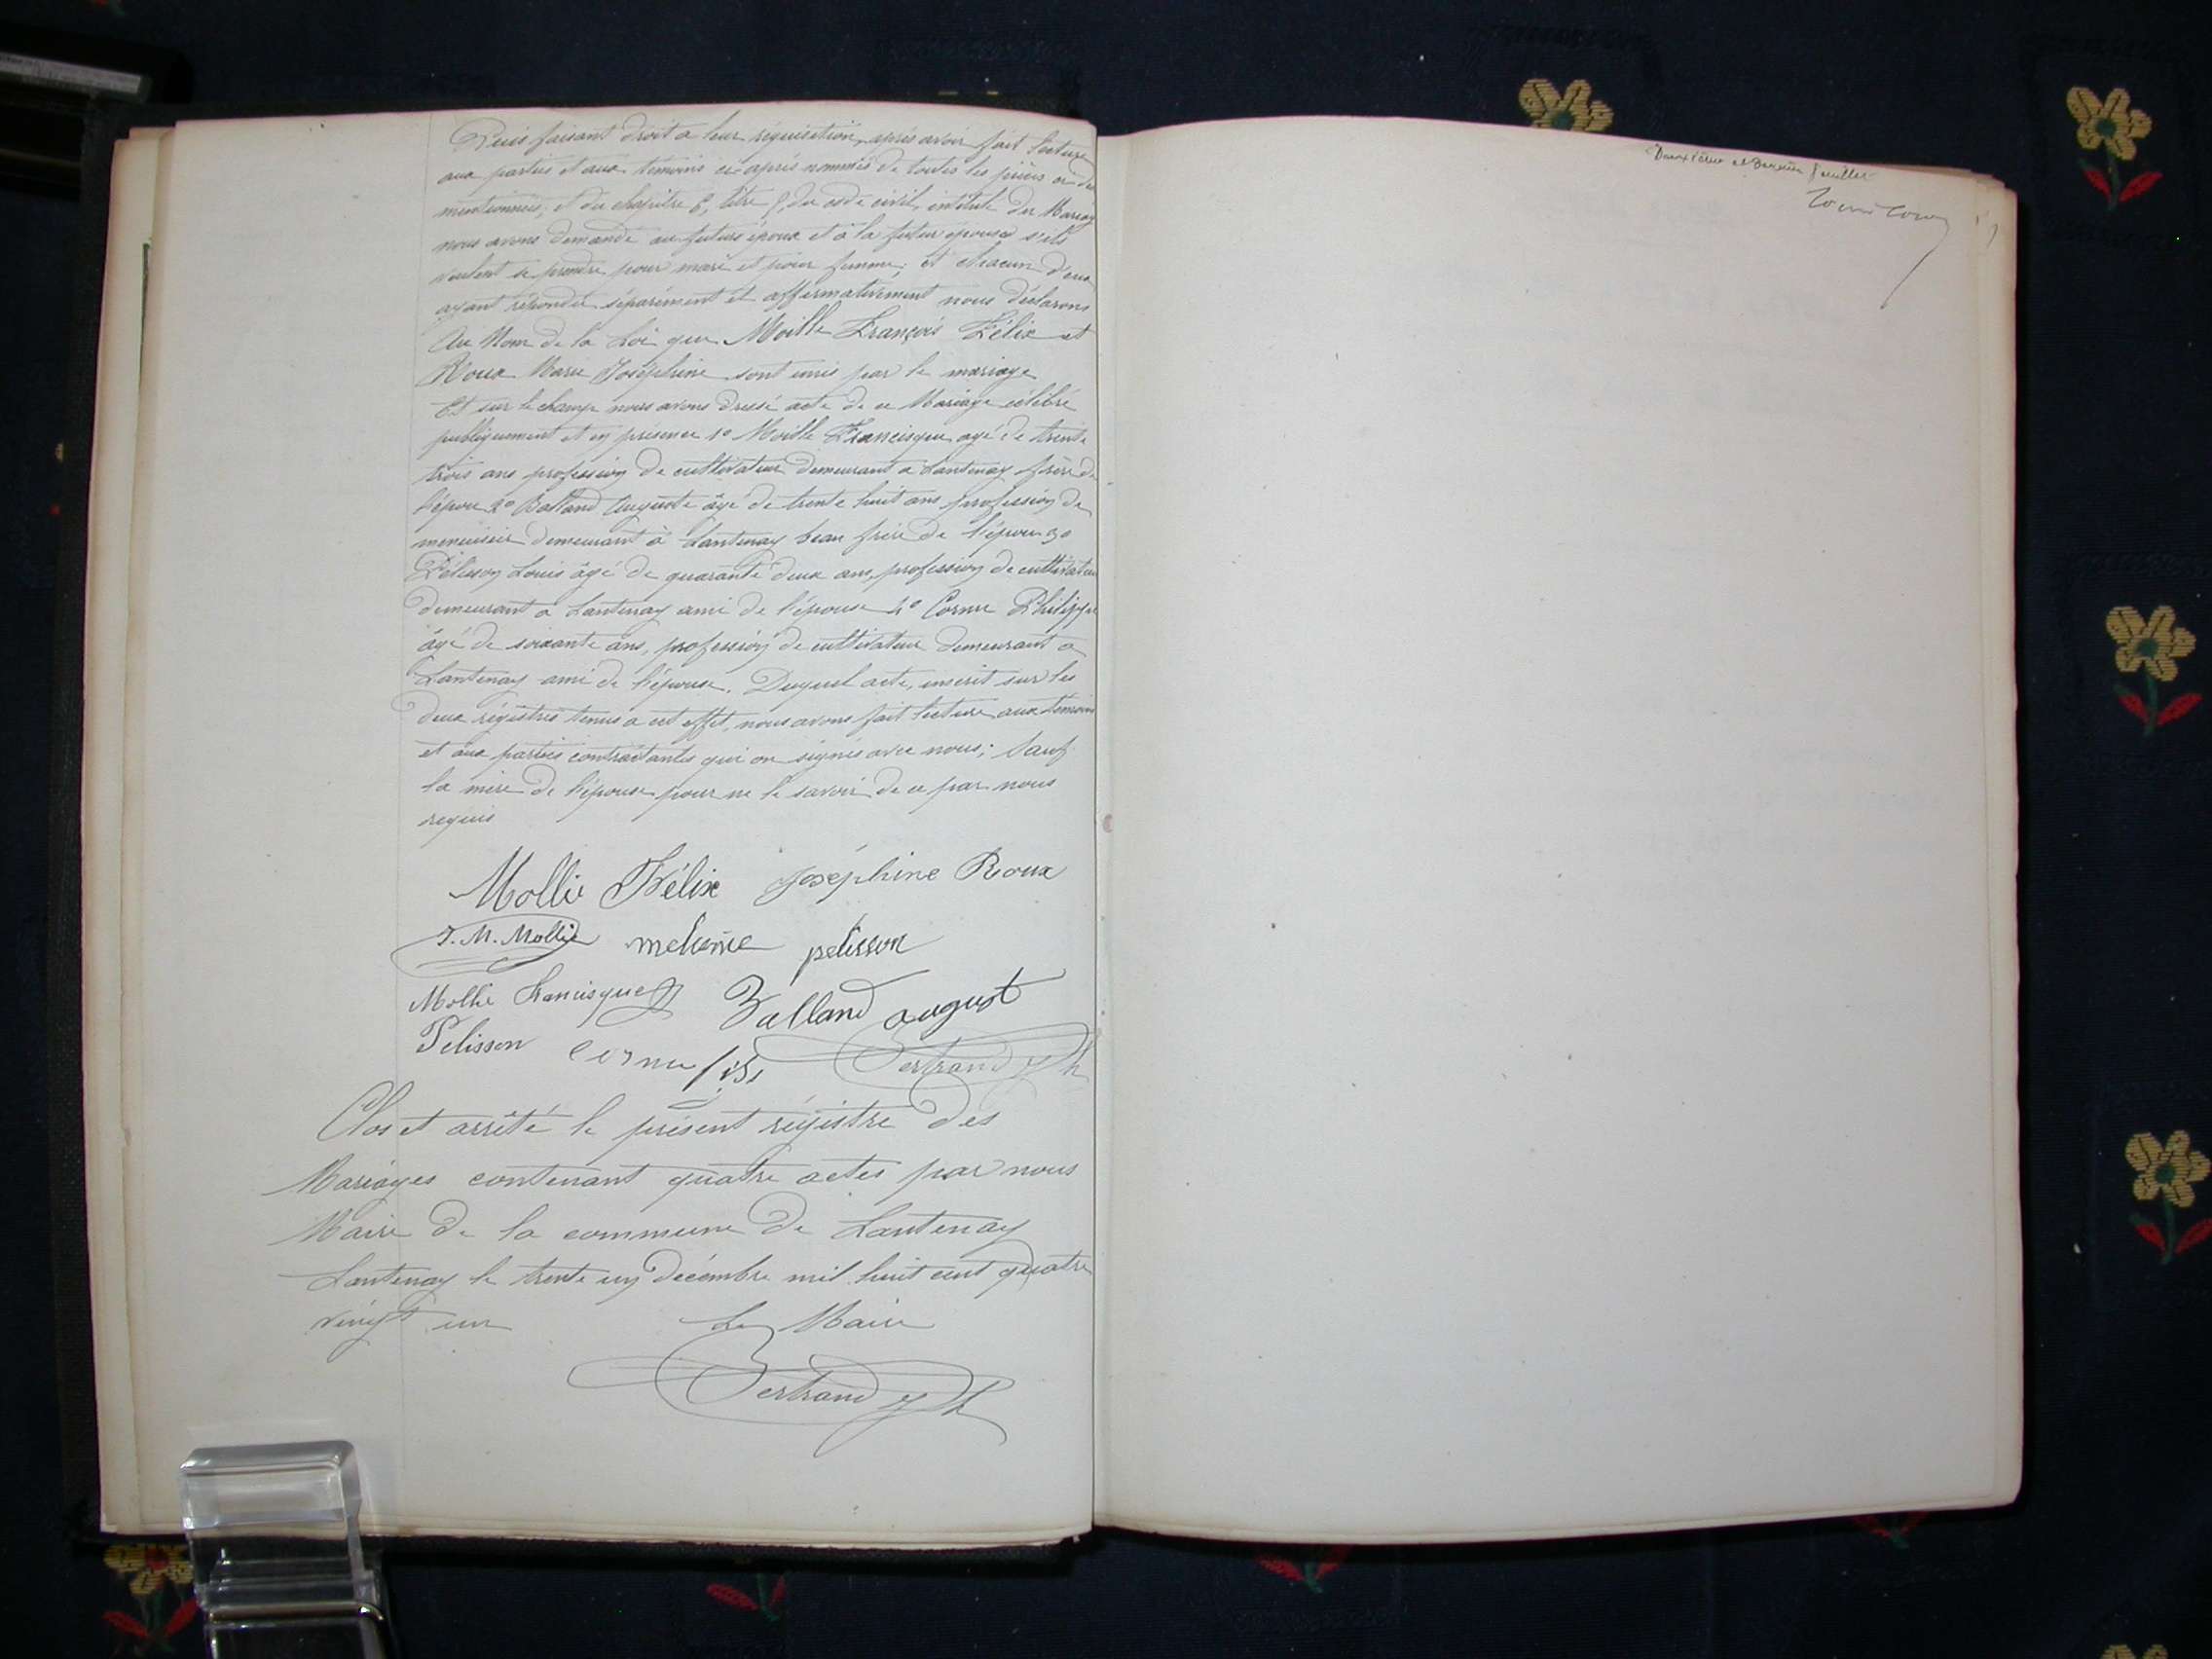 Puis faisant droit a leur réquisition, après avoir fait lecture
aux parties et aux témoins ci-après nommés de toutes les pièces ci-des
mentionnées, et du chapitre 6, titre 5, du code civil intitulé du Mariage
nous avons demandé au future époux et à la futur épouse s'ils
veulent se prendre pour mari et pour femme; et chacun d'eux
ayant répondu séparément et affirmativement nous déclarons
Au Nom de la Loi que Moille François Félix et
Roux Marie Joséphine sont unis par le mariage
Et sur le champ nous avons dressé acte de ce Mariage célébré
publiquement et en présence 1º Moille Francisque agé de trente
trois ans profession de cultivateur demeurant a Lantenay frère de
l'époux 2º Balland Auguste âgé de trente huit ans, profession de
menuisier demeurant à Lantenay beau frère de l'époux 3º
Pélisson Louis âgé de quarante deux ans, profession de cultivateur
demeurant a Lantenay ami de l'épouse 4º Cornu Philippe
âgé de soixante ans, profession de cultivateur demeurant a
Lantenay ami de l'épouse. Duquel acte, inscrit sur les
deux régistres tenus a cet effet, nous avons fait lecture aux témoins
et aux parties contractantes qui on signés avec nous; Sauf
la mère de l'épouse pour ne le savoir de ce par nous
requis
Mollie Félix Joséphine Roux
J. M. Mollie pelisson
Mollie Francisque Balland august
Pelisson Cornu Bertrand
Clos et arrêté le présent régistre des
Mariages contenant quatre actes par nous
Maire de la commune de Lantenay
Lantenay le trente un Décembre mil huit cent quatre
vingt un Le Maire
Bertrand
Deuxième et Dernier feuillet